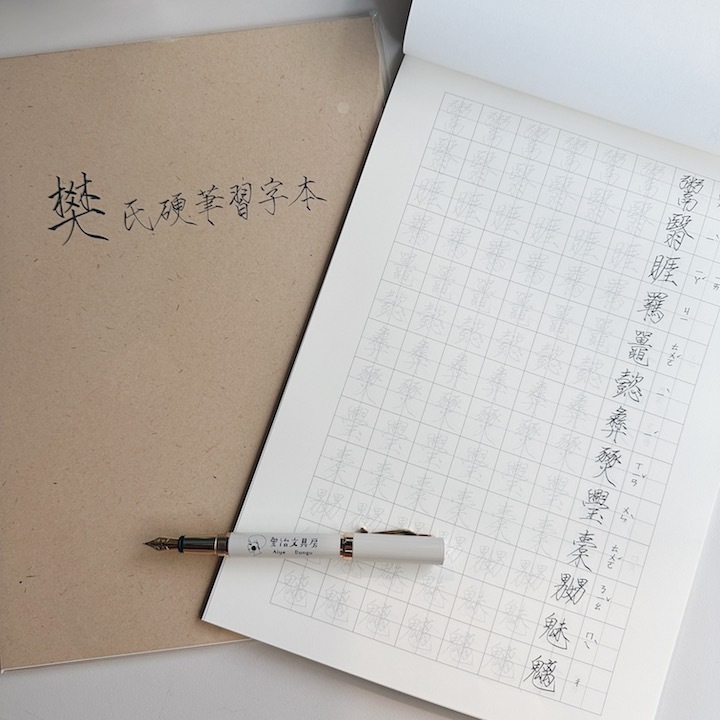 樊氏硬筆習字本
鬻翳睚羈鼉懿彝燹璺橐嬲魅魑
愛治文具房
Aiye Bungu